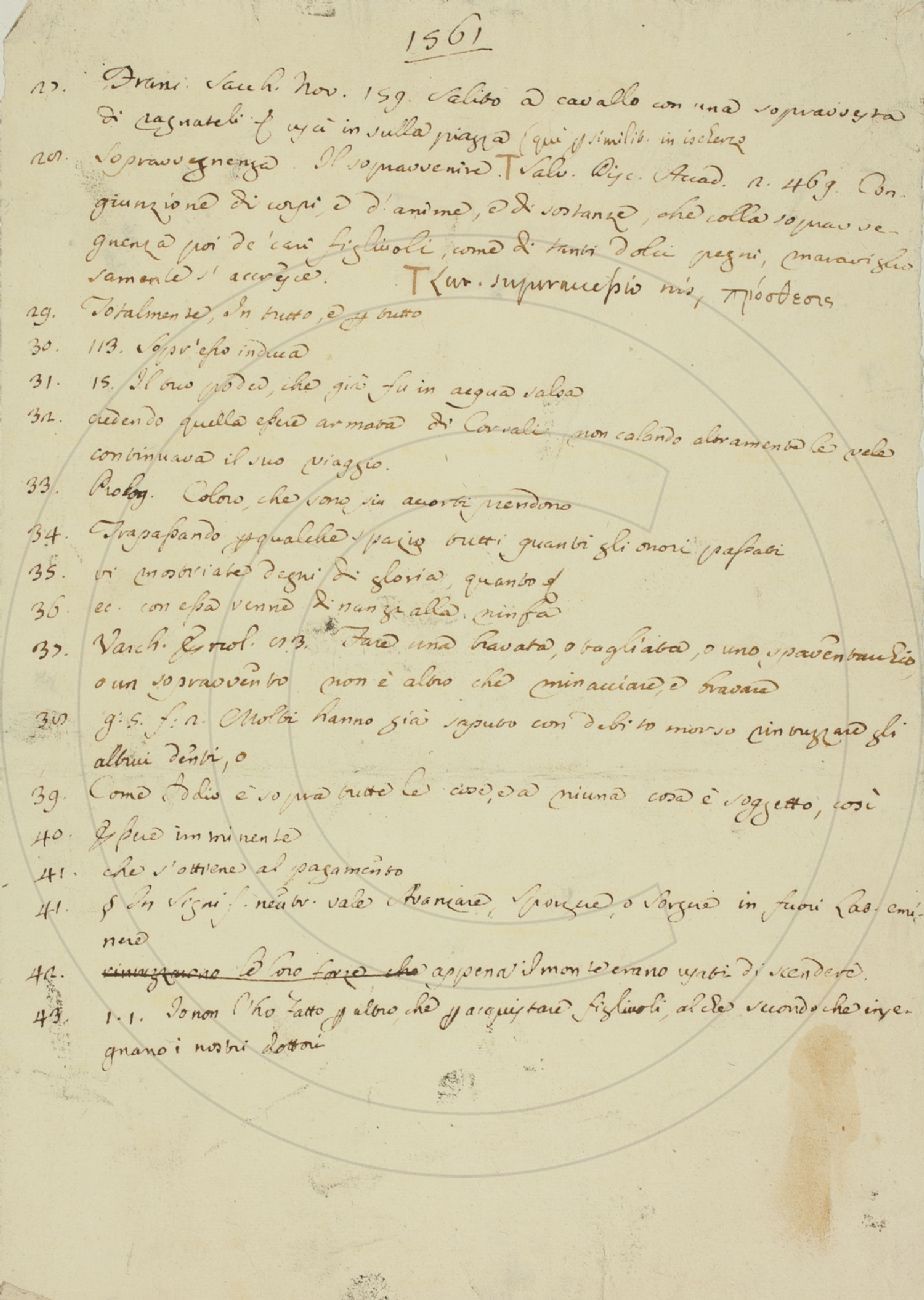 1561
27. Franc. Sacch. Nov. 159. Salito a cavallo con una sopravvesta
di ragnateli uscì in sulla piazza (qui p similit. in ischerzo
28. Sopravvegnenza Il sopravvenire. T Salv. Disc. Accad. 2. 469. Con-
giunzione di corpi, e d'anime, e di sostanze, che colla sopravve-
gnenza poi de' cari figliuoli, come di tanti dolci pegni, maraviglio
samente s'accresce. T Lat. superaccessio πρόσθεσις
29. Totalmente, In tutto, e p tutto
30. 113. Sopr'esso indica
31. 15. Il tuo podere, che già fu in acqua salsa
32. credendo quella essere armata di Corsali, non calando altramente le vele
continuava il suo viaggio.
33. Prolog. Coloro, che sono sì accorti prendono
34. Trapassando p qualche spazio tutti quanti gli onori passati
35. vi mostriate degni di gloria, quanto
36. ec. con essa venne dinanzi alla ninfa
37. Varch. Ercol. 53. Fare una bravata, o tagliata, o uno spaventacchio,
o un sopravvento non è altro che minacciare, e bravare
38. g. 5. f. 2. Molti hanno già saputo con debito morso rintuzzare gli
altrui denti, o
39. Come Iddio è sopra tutte le cose, e a niuna cosa è soggetto, così
40. Essere imminente
41. che s'ottiene al pagamento
41. § In signif. neutr. vale Avanzare, Sporgere, o Sorgere in fuori Lat. emi-
nere
42. rintuzzarono le loro forze che appena il monte erano usati di scendere.
43. 1. 1. Io non l'ho fatto p altro, che p acquistare figliuoli, alchè secondo che inse-
gnano i nostri dottori